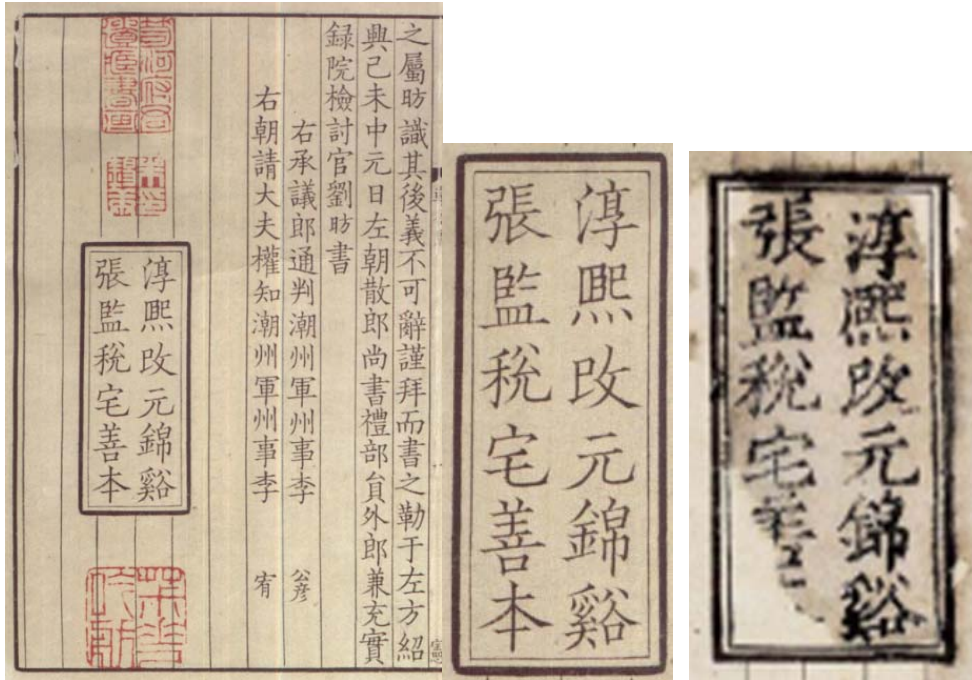 之屬昉識其後義不可辭謹拜而書之勒于左方紹
興己未中元日左朝散郎尚書禮部貟外郎兼充實
録院檢討官劉昉書
右承議郎通判潮州軍州事李 公彥
右朝請大夫權知潮州軍州事李 宥
淳熙攺元錦谿
張監稅宅善本
淳熙攺元錦谿
張監稅宅善本
淳熙攺元錦谿
張監稅宅